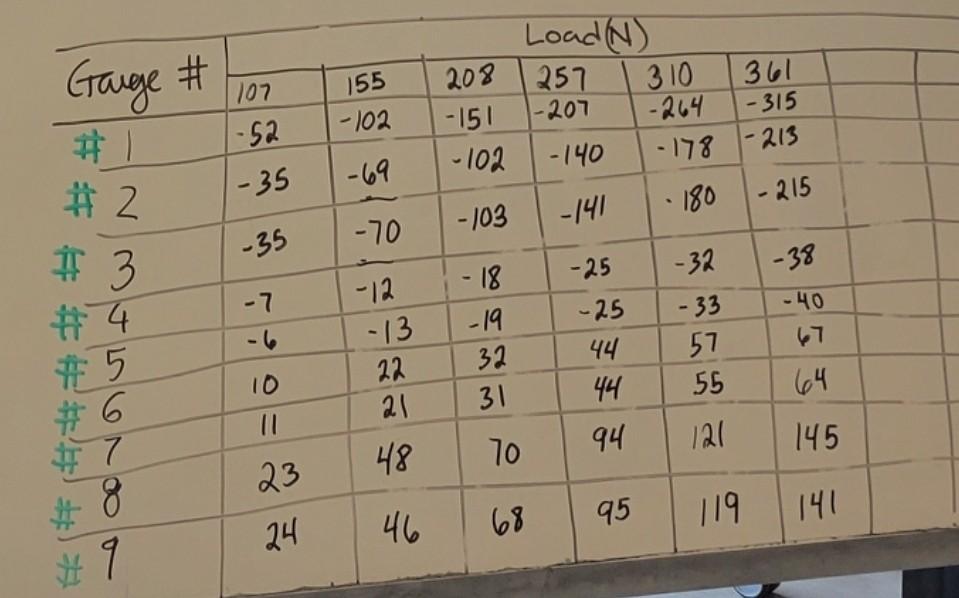 Load(N)
Gauge # 107 155 208 257 310 361
# 1 -52 -102 -151 -207 -264 -315
# 2 -35 -69 -102 -140 -178 -213
# 3 -35 -70 -103 -141 -180 -215
# 4 -7 -12 -18 -25 -32 -38
# 5 -6 -13 -19 -25 -33 -40
# 6 10 22 32 44 57 67
# 7 11 21 31 44 55 64
# 8 23 48 70 94 121 145
# 9 24 46 68 95 119 141